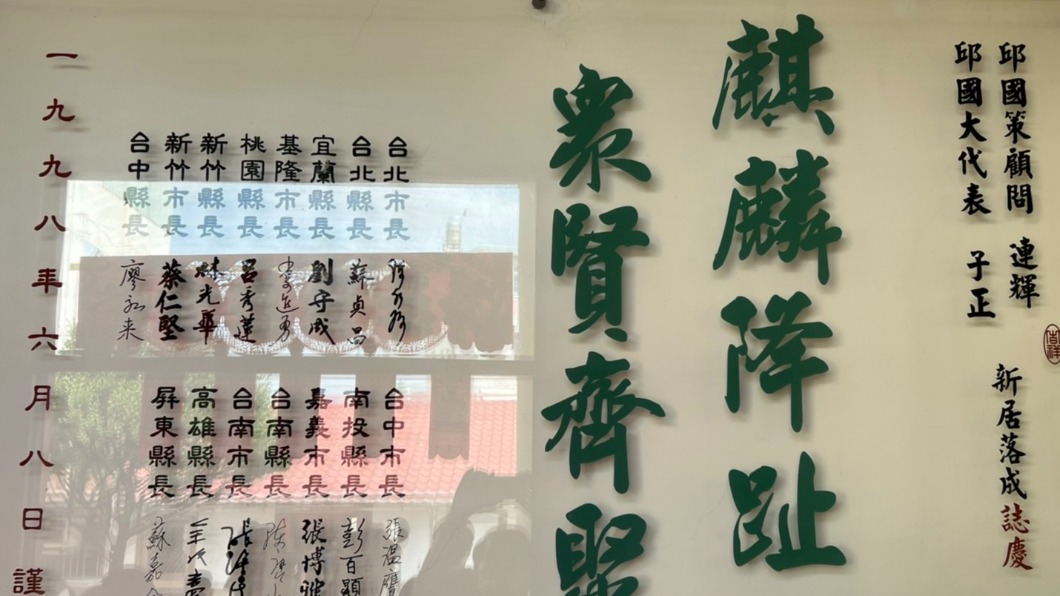 邱國策顧問 連輝
邱國大代表 子正
新居落成誌慶
吉祥
麒麟降趾
衆賢齊聚
台北市長
台北縣長 蘇貞昌
宜蘭縣長 劉守成
基隆市長 李進勇
桃園縣長 呂秀蓮
新竹縣長 林光華
新竹市長 蔡仁堅
台中縣長 廖永来
台中市長 張温鷹
南投縣長 彭百顯
嘉義市長 張博雅
台南縣長
台南市長
高雄縣長
屏東縣長 蘇嘉
一九九八年六月八日謹